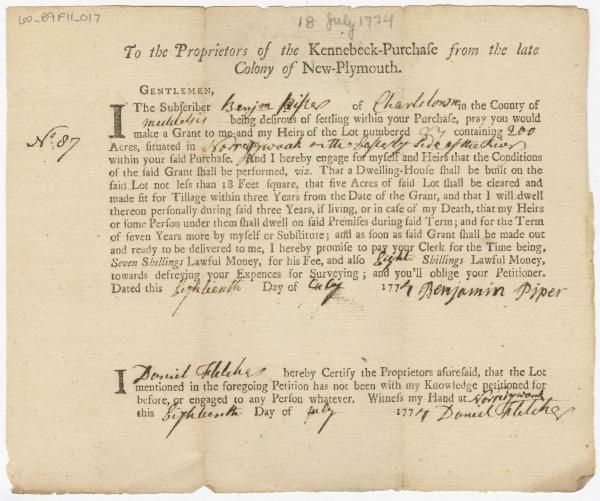 60-89F11_017
18 July 1774
To the Proprietors of the Kennebeck-Purchase from the late
Colony of New-Plymouth.
GENTLEMEN,
I The Subscriber Benjm Piper of Charlstown in the County of
being desirous of settling within your Purchase, pray you would
make a Grant to me and my Heirs of the Lot numbered 87 containing 200
No. 87
Acres, situated in Norridgwoak on the side of the River
within your said Purchase. And I hereby engage for myself and Heirs that the Conditions
of the said Grant shall be performed, viz. That a Dwelling-House shall be built on the
said Lot not less than 18 Feet square, that five Acres of said Lot shall be cleared and
made fit for Tillage within three Years from the Date of the Grant, and that I will dwell
thereon personally during said three Years, if living, or in case of my Death, that my Heirs
or some Person under them shall dwell on said Premises during said Term; and for the Term
of seven Years more by myself or Substitute; and as soon as said Grant shall be made out
and ready to be delivered to me, I hereby promise to pay your Clerk for the Time being,
Seven Shillings Lawful Money, for his Fee, and also Eight Shillings Lawful Money,
towards defreying your Expences for Surveying; and you'll oblige your Petitioner.
Dated this Eighteenth Day of July 1774 Benjamin Piper
I Daniel Fletcher hereby Certify the Proprietors aforesaid, that the Lot
mentioned in the foregoing Petition has not been with my Knowledge petitioned for
before, or engaged to any Person whatever. Witness my Hand at Norridgwoak
this Eighteenth Day of July 1774 Daniel Fletcher